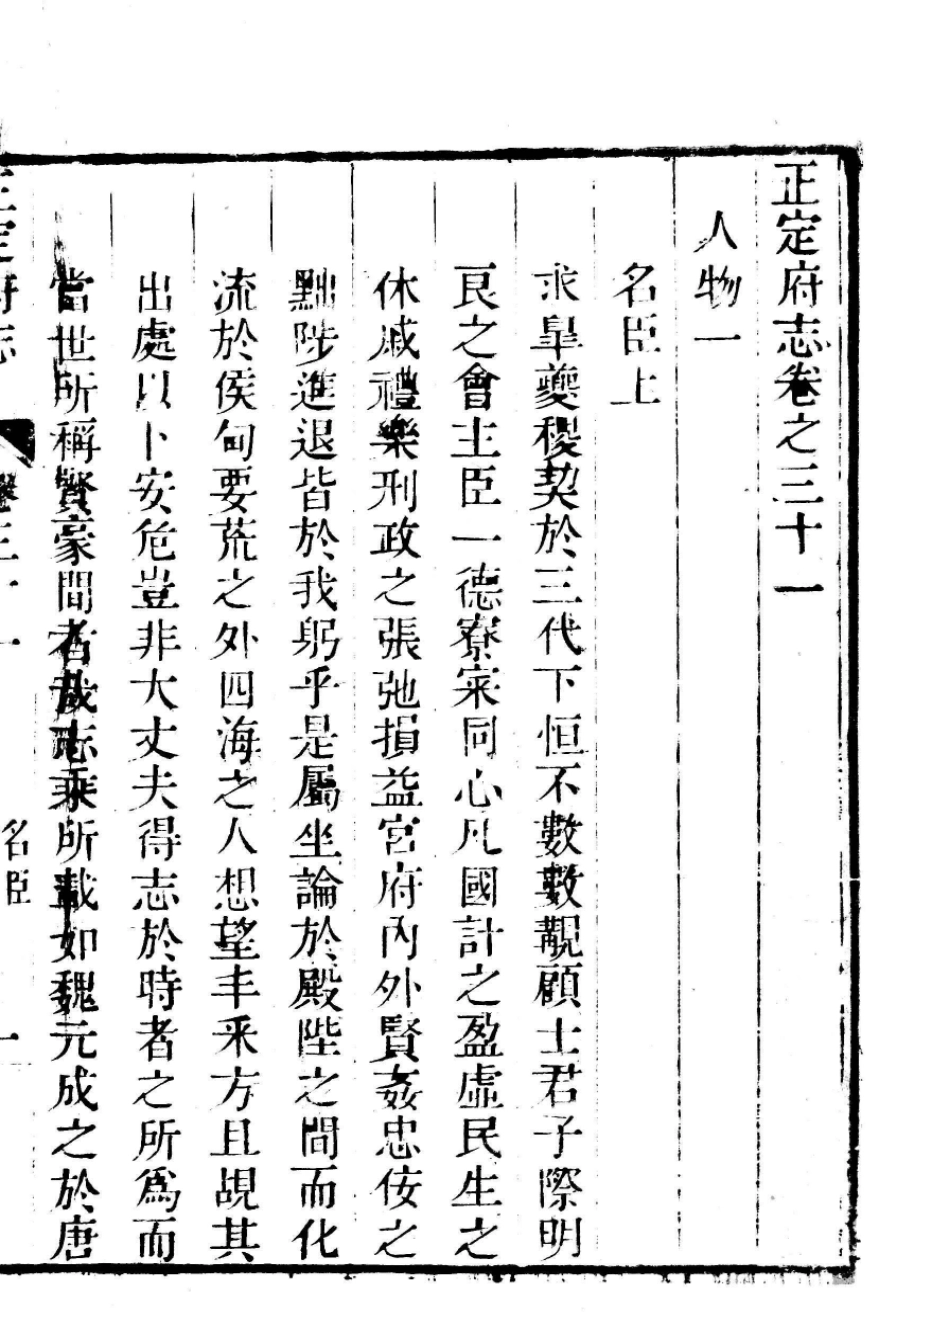 正定府志卷之三十一
人物一
名臣上
求臯夔稷契於三代下恒不數數覯顧士君子際明
良之會主臣一德寮寀同心凡國計之盈虛民生之
休戚禮樂刑政之張弛損益宮府內外賢姦忠佞之
黜陟進退皆於我躬乎是屬坐論於殿陛之間而化
流於侯甸要荒之外四海之人想望丰采方且覘其
出處以卜安危豈非大丈夫得志於時者之所爲而
當世所稱賢豪間者哉志乘所載如魏元成之於唐
正定府志
卷三十一
名臣
一